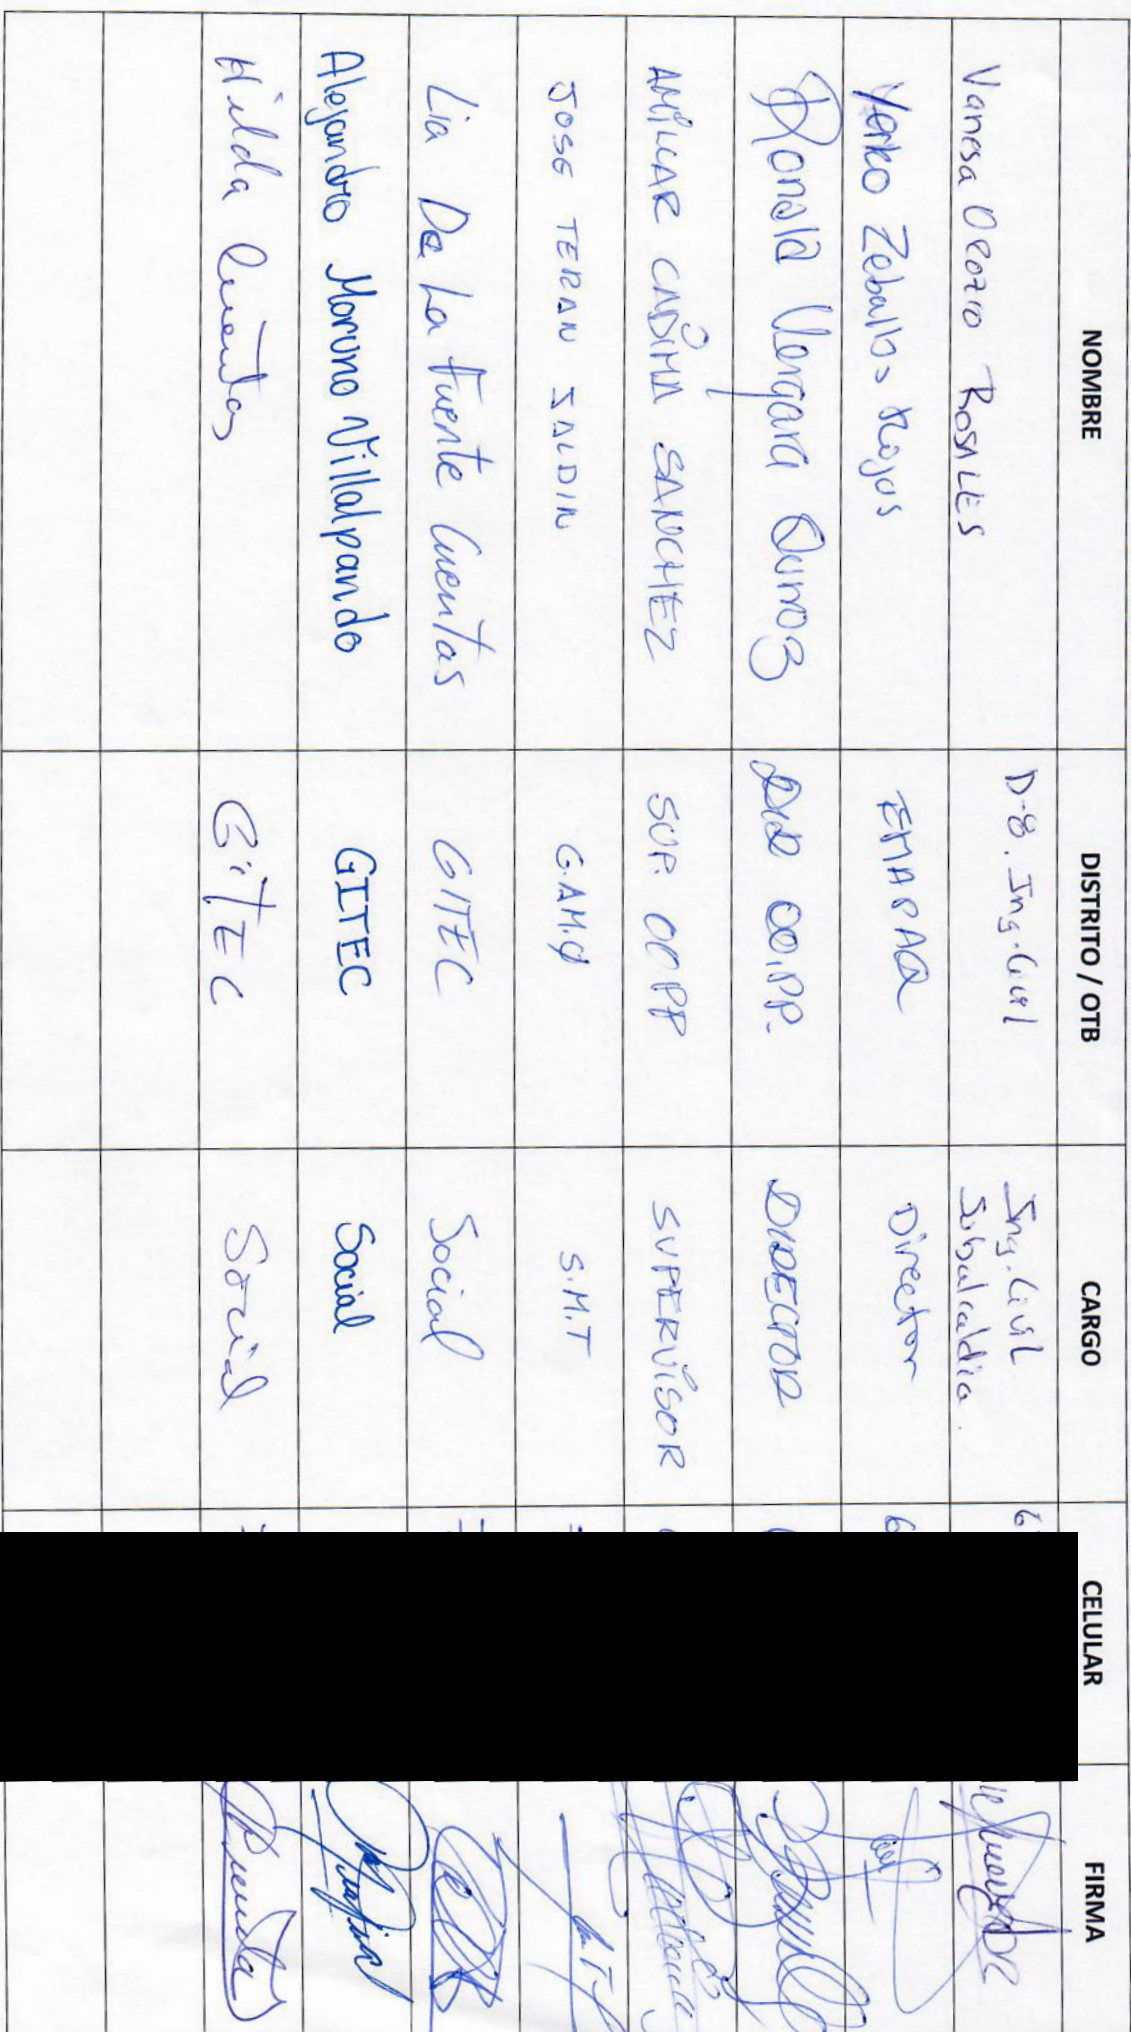 NOMBRE DISTRITO / OTB CARGO CELULAR FIRMA
Vanesa Orozio Rosales D-8. Ing. Civil Ing. Civil Subalcaldia. 6
Yerko Zeballos Rojas EMAPAQ Director 6
Ronald Vergara Quiroz DIR OO.PP. DIRECTOR
AMILCAR CADIMA SANCHEZ SUP. OO.PP SUPERVISOR
JOSE TERAN SALDIN G.A.M.Q S.M.T
Lia De La Fuente Cuentas GITEC Social
Alejandro Moruno Villalpando GITEC Social
Hilda Cuentas GITEC Social